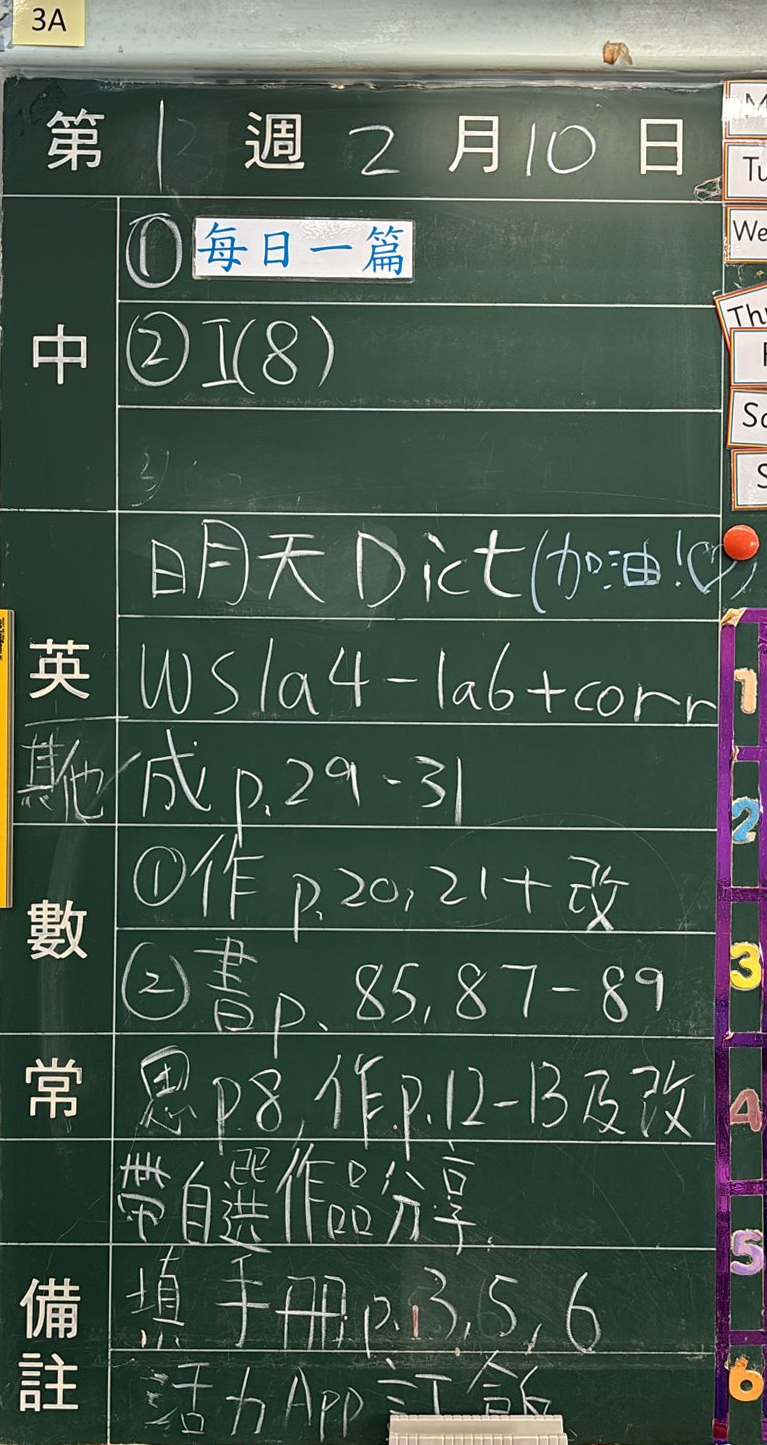 3A
第 1 週 2 月 10 日
中
① 每日一篇
② I(8)
英
明天 Dict (加油!♡)
WS1a4-1a6+corr
其他
成 p.29-31
數
① 作 p.20,21+改
② 書 p. 85,87-89
常
思 p.8,作 p.12-13及改
帶自選作品分享.
備註
填手冊 p.3,5,6
活力App 訂飯
Tu
We
Thu
1
2
3
4
5
6